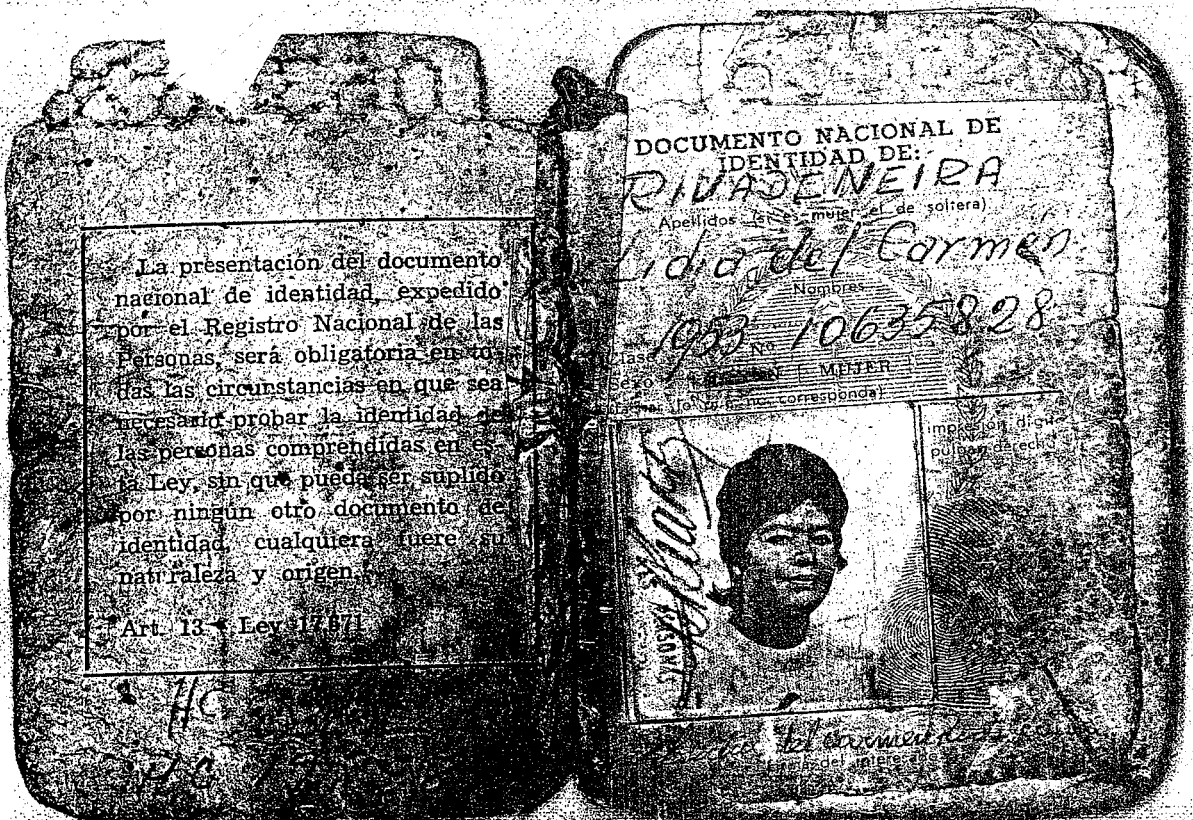 La presentación del documento
nacional de identidad, expedido
por el Registro Nacional de las
Personas, será obligatoria en to-
das las circunstancias en que sea
necesario probar la identidad de
las personas comprendidas en es-
ta Ley, sin que pueda ser suplido
por ningún otro documento de
identidad, cualquiera fuere su
naturaleza y origen.
Art. 13 - Ley 17.671
DOCUMENTO NACIONAL DE
IDENTIDAD DE:
RIVADENEIRA
Apellidos (si es mujer el de soltera)
Lidia del Carmen
Nombres
Clase 1953 Nº 10635828
Sexo MUJER
corresponda)
impresión dígito
pulgar derecho
del Carmen
Firma del interesado